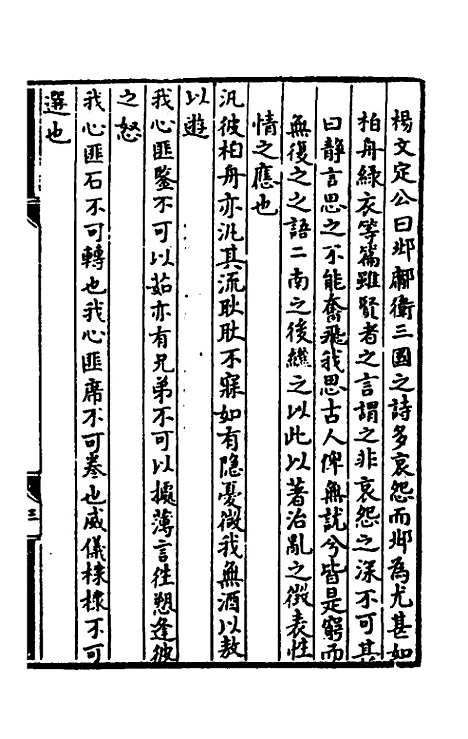 楊文定公曰邶鄘衛三國之詩多哀怨而邶為尤甚如
柏舟綠衣等篇雖賢者之言謂之非哀怨之深不可其
曰靜言思之不能奮飛我思古人俾無訧兮皆是窮而
無復之之語二南之後繼之以此以著治亂之徵表性
情之應也
汎彼柏舟亦汎其流耿耿不寐如有隱憂微我無酒以敖
以遊
我心匪鑒不可以茹亦有兄弟不可以據薄言往愬逢彼
之怒
我心匪石不可轉也我心匪席不可卷也威儀棣棣不可
選也
三